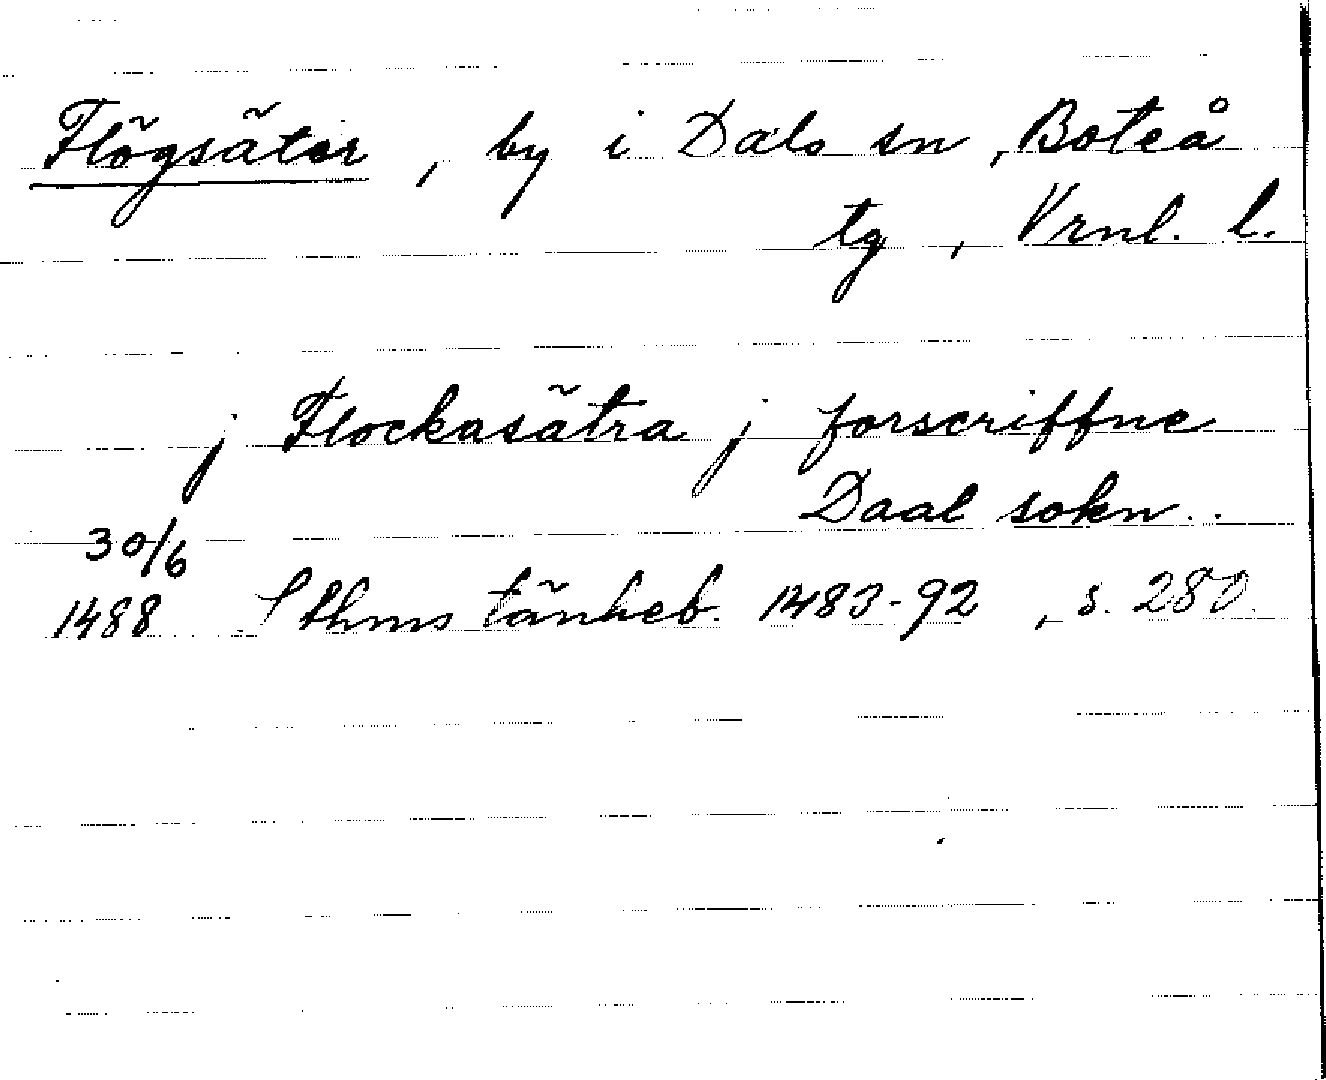 Flögsäter, by i Dals sn, Boteå
tg, Vrnl. l.
j Flockasätra j forscriffne
Daal sokn..
30/6
1488 Sthms tänkeb. 1483-92, s. 280.